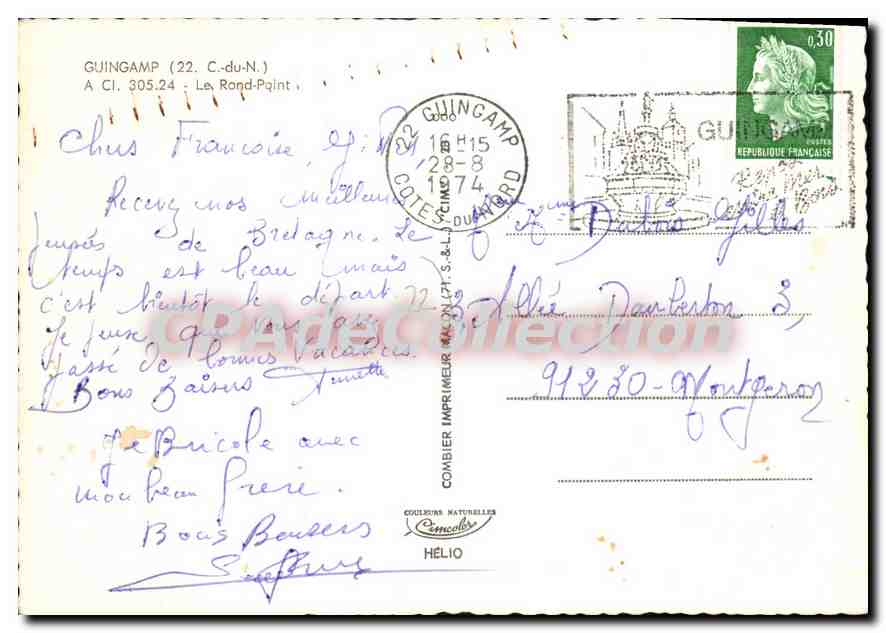 GUINGAMP (22. C.-du-N.)
A Cl. 305.24 - Le Rond-Point
Chers Françoise, Gilles,
Recevez nos meilleures
pensées de Bretagne. Le
temps est beau mais
c'est bientôt le départ.
Je pense que vous avez
passé de bonnes vacances.
Bons Baisers Ginette
Je Bricole avec
mon beau frere.
Bons Baisers
22 GUINGAMP
16 H 15
28-8
1974
COTES-DU-NORD
GUINGAMP
0,30
POSTES
REPUBLIQUE FRANÇAISE
Dubois Gilles
72 Allée Dauberton 3,
91230 - Montgeron
COMBIER IMPRIMEUR MACON (71. S.-&-L.) "CIM"
COULEURS NATURELLES
Cimcolor
HÉLIO
CPAdeCollection